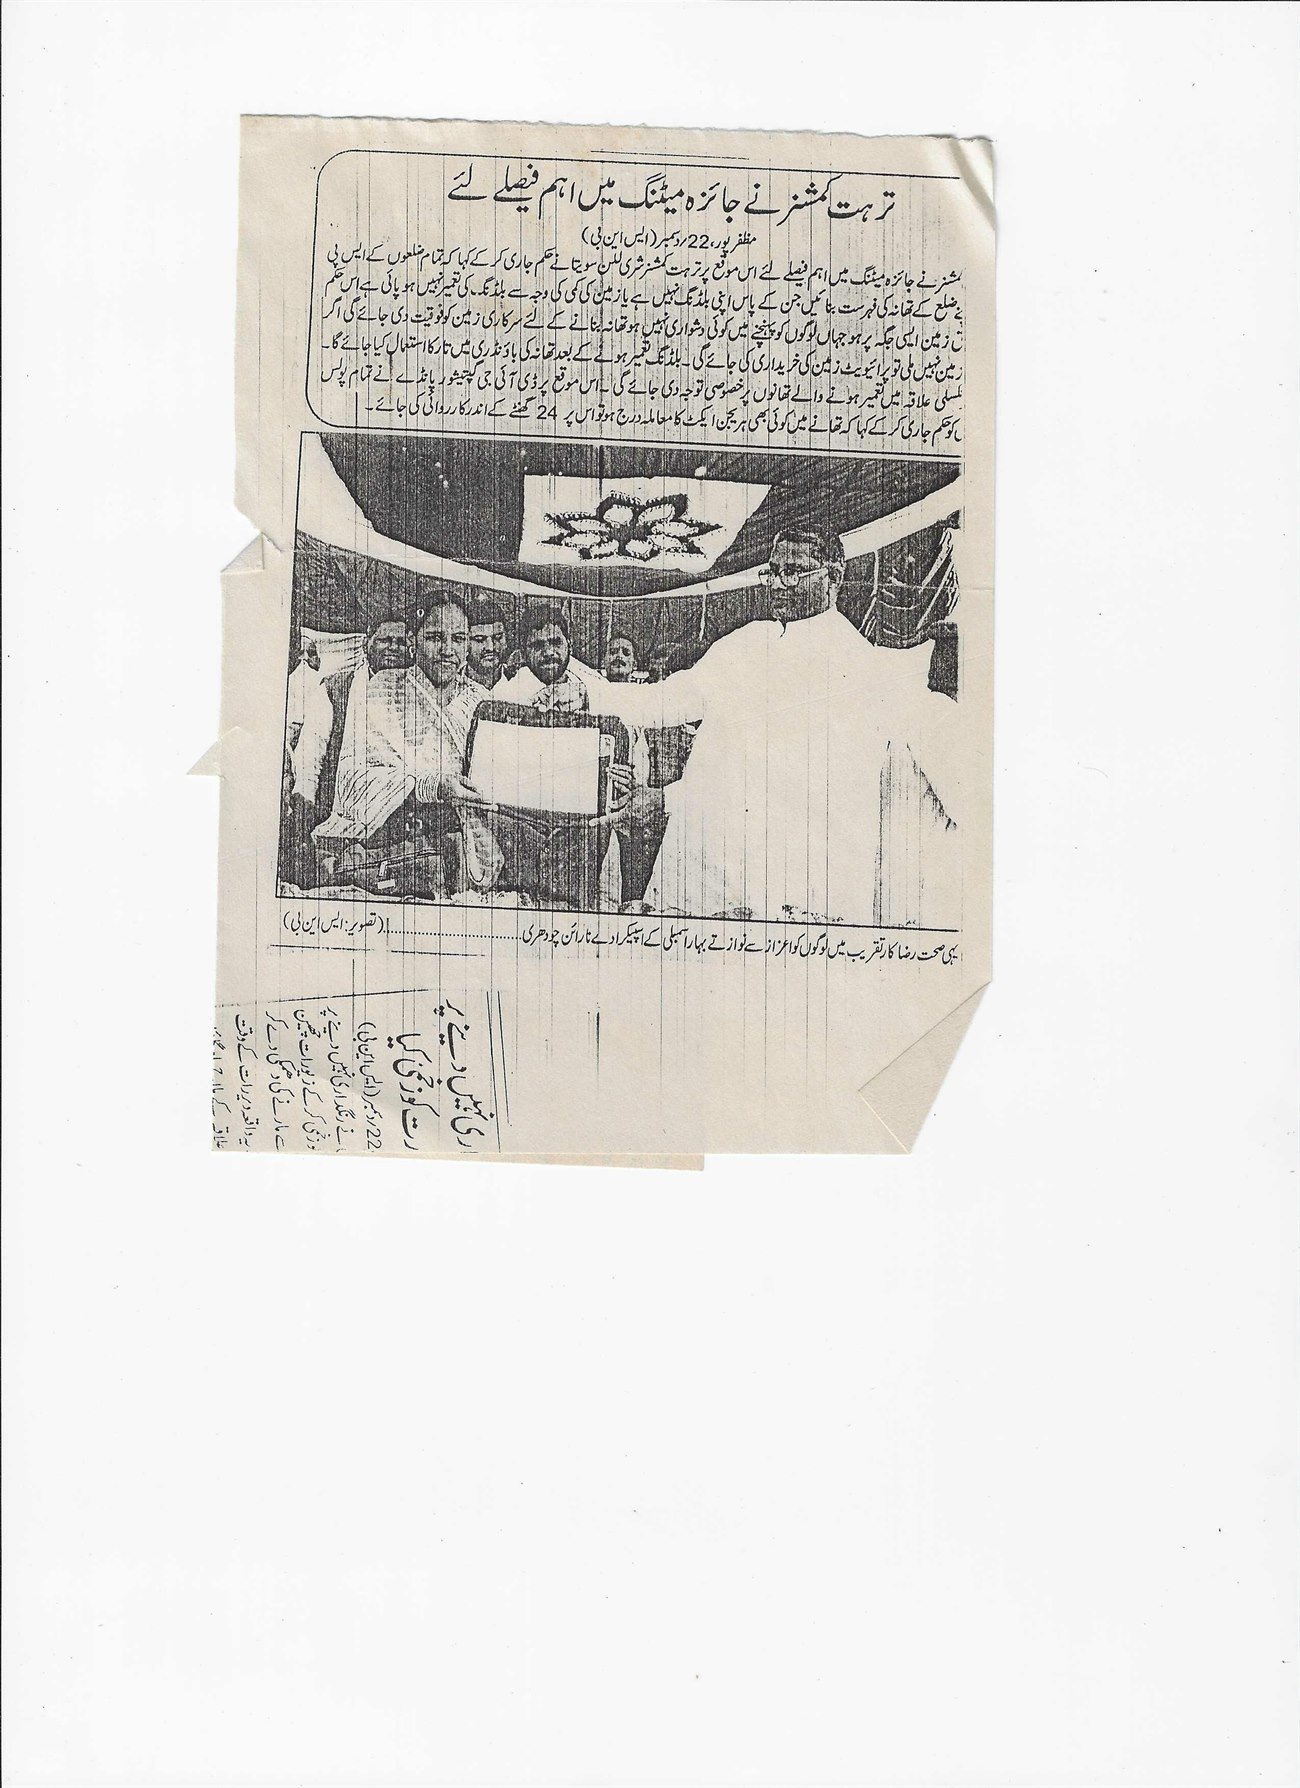 ترہت کمشنر نے جائزہ میٹنگ میں اہم فیصلے لئے
مظفر پور، 22/دسمبر (ایس این بی)
کمشنر نے جائزہ میٹنگ میں اہم فیصلے لئے اس موقع پر ترہت کمشنر شری للن سوپتا نے حکم جاری کر کے کہا کہ تمام ضلعوں کے ایس پی
ضلع کے تھانہ کی فہرست بنائیں جن کے پاس اپنی بلڈنگ نہیں ہے یا زمین کی کمی کی وجہ سے بلڈنگ کی تعمیر نہیں ہو پائی ہے اس حکم
زمین ایسی جگہ پر ہو جہاں لوگوں کو پہنچنے میں کوئی دشواری نہیں ہو تھانہ بنانے کے لئے سرکاری زمین کو فوقیت دی جائے گی اگر
زمین نہیں ملی تو پرائیویٹ زمین کی خریداری کی جائے گی۔ بلڈنگ تعمیر ہونے کے بعد تھانہ کی باؤنڈری میں تار کا استعمال کیا جائے گا۔
علاقہ میں تعمیر ہونے والے تھانوں پر خصوصی توجہ دی جائے گی۔ اس موقع پر ڈی آئی جی گپتیشور پانڈے نے تمام پولس
کو حکم جاری کر کے کہا کہ تھانے میں کوئی بھی ہریجن ایکٹ کا معاملہ درج ہو تو اس پر 24 گھنٹے کے اندر کارروائی کی جائے۔
یہی صحت رضا کار تقریب میں لوگوں کو اعزاز سے نوازتے بہار اسمبلی کے اسپیکر ادے نارائن چودھری (تصویر: ایس این بی)
ری نہیں دینے پر
رت کو زخمی کیا
22/دسمبر (ایس این بی)
نے رنگداری نہیں دینے پر
زخمی کر کے زیورات چھین
سے مارنے کی دھمکی دے کر
یہ واقعہ دیر رات کے وقت
علاقہ کے